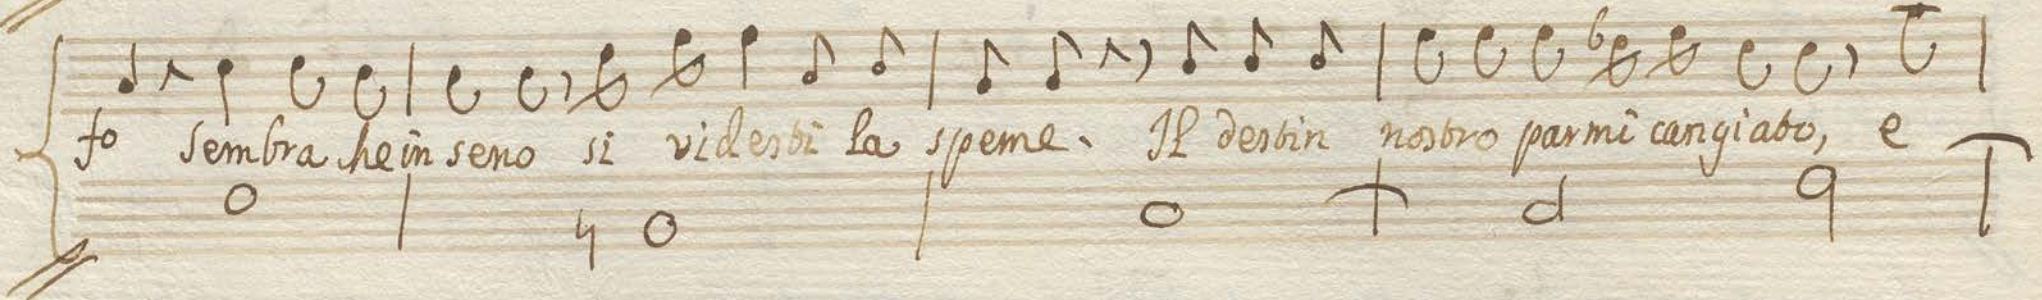 to sembra che in seno si vi desti la speme. Il destin nostro parmi cangiato, e